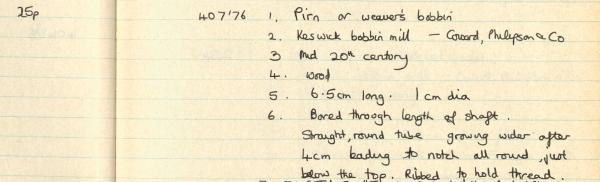 25p 407'76 1. Pirn or weaver's bobbin
2. Keswick bobbin mill - Coward, Philipson & Co
3 Mid 20th century
4. wood
5. 6.5cm long. 1cm dia
6. Bored through length of shaft.
Straight, round tube growing wider after
4cm leading to notch all round, just
below the top. Ribbed to hold thread.